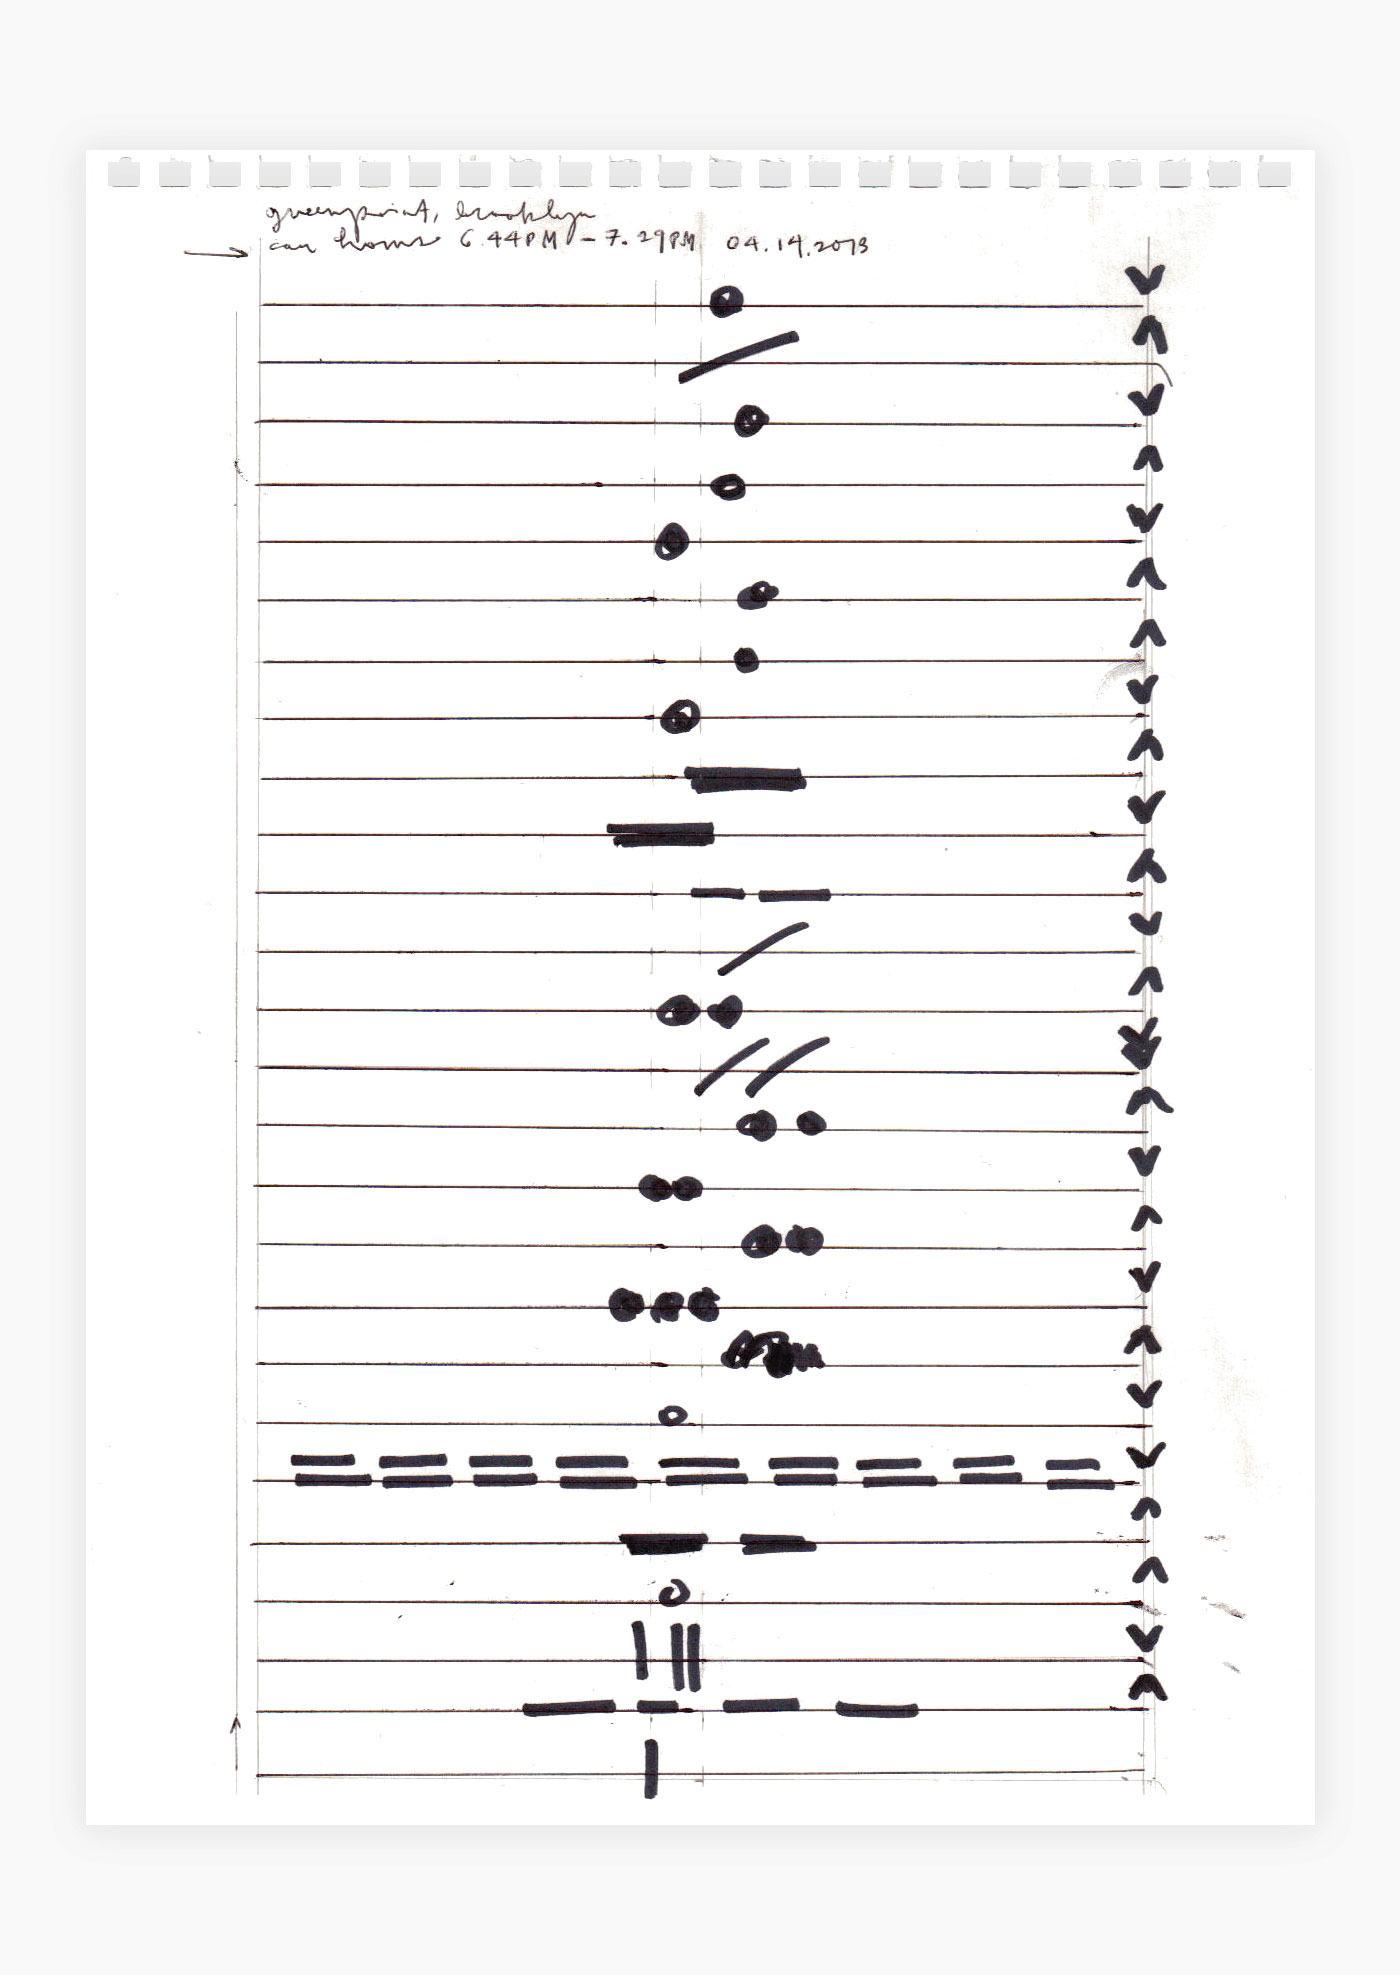 greenpoint, brooklyn
car horns 6.44PM – 7.29PM 04.14.2013